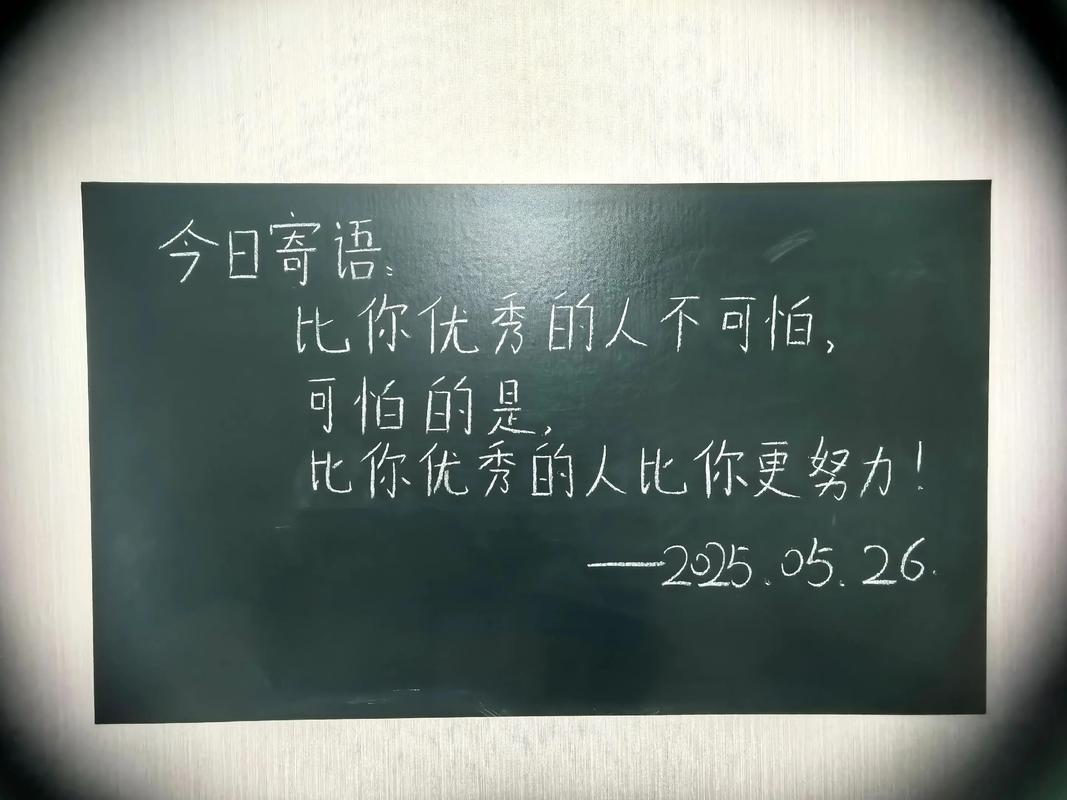 今日寄语：
比你优秀的人不可怕，
可怕的是，
比你优秀的人比你更努力！
——2025.05.26.